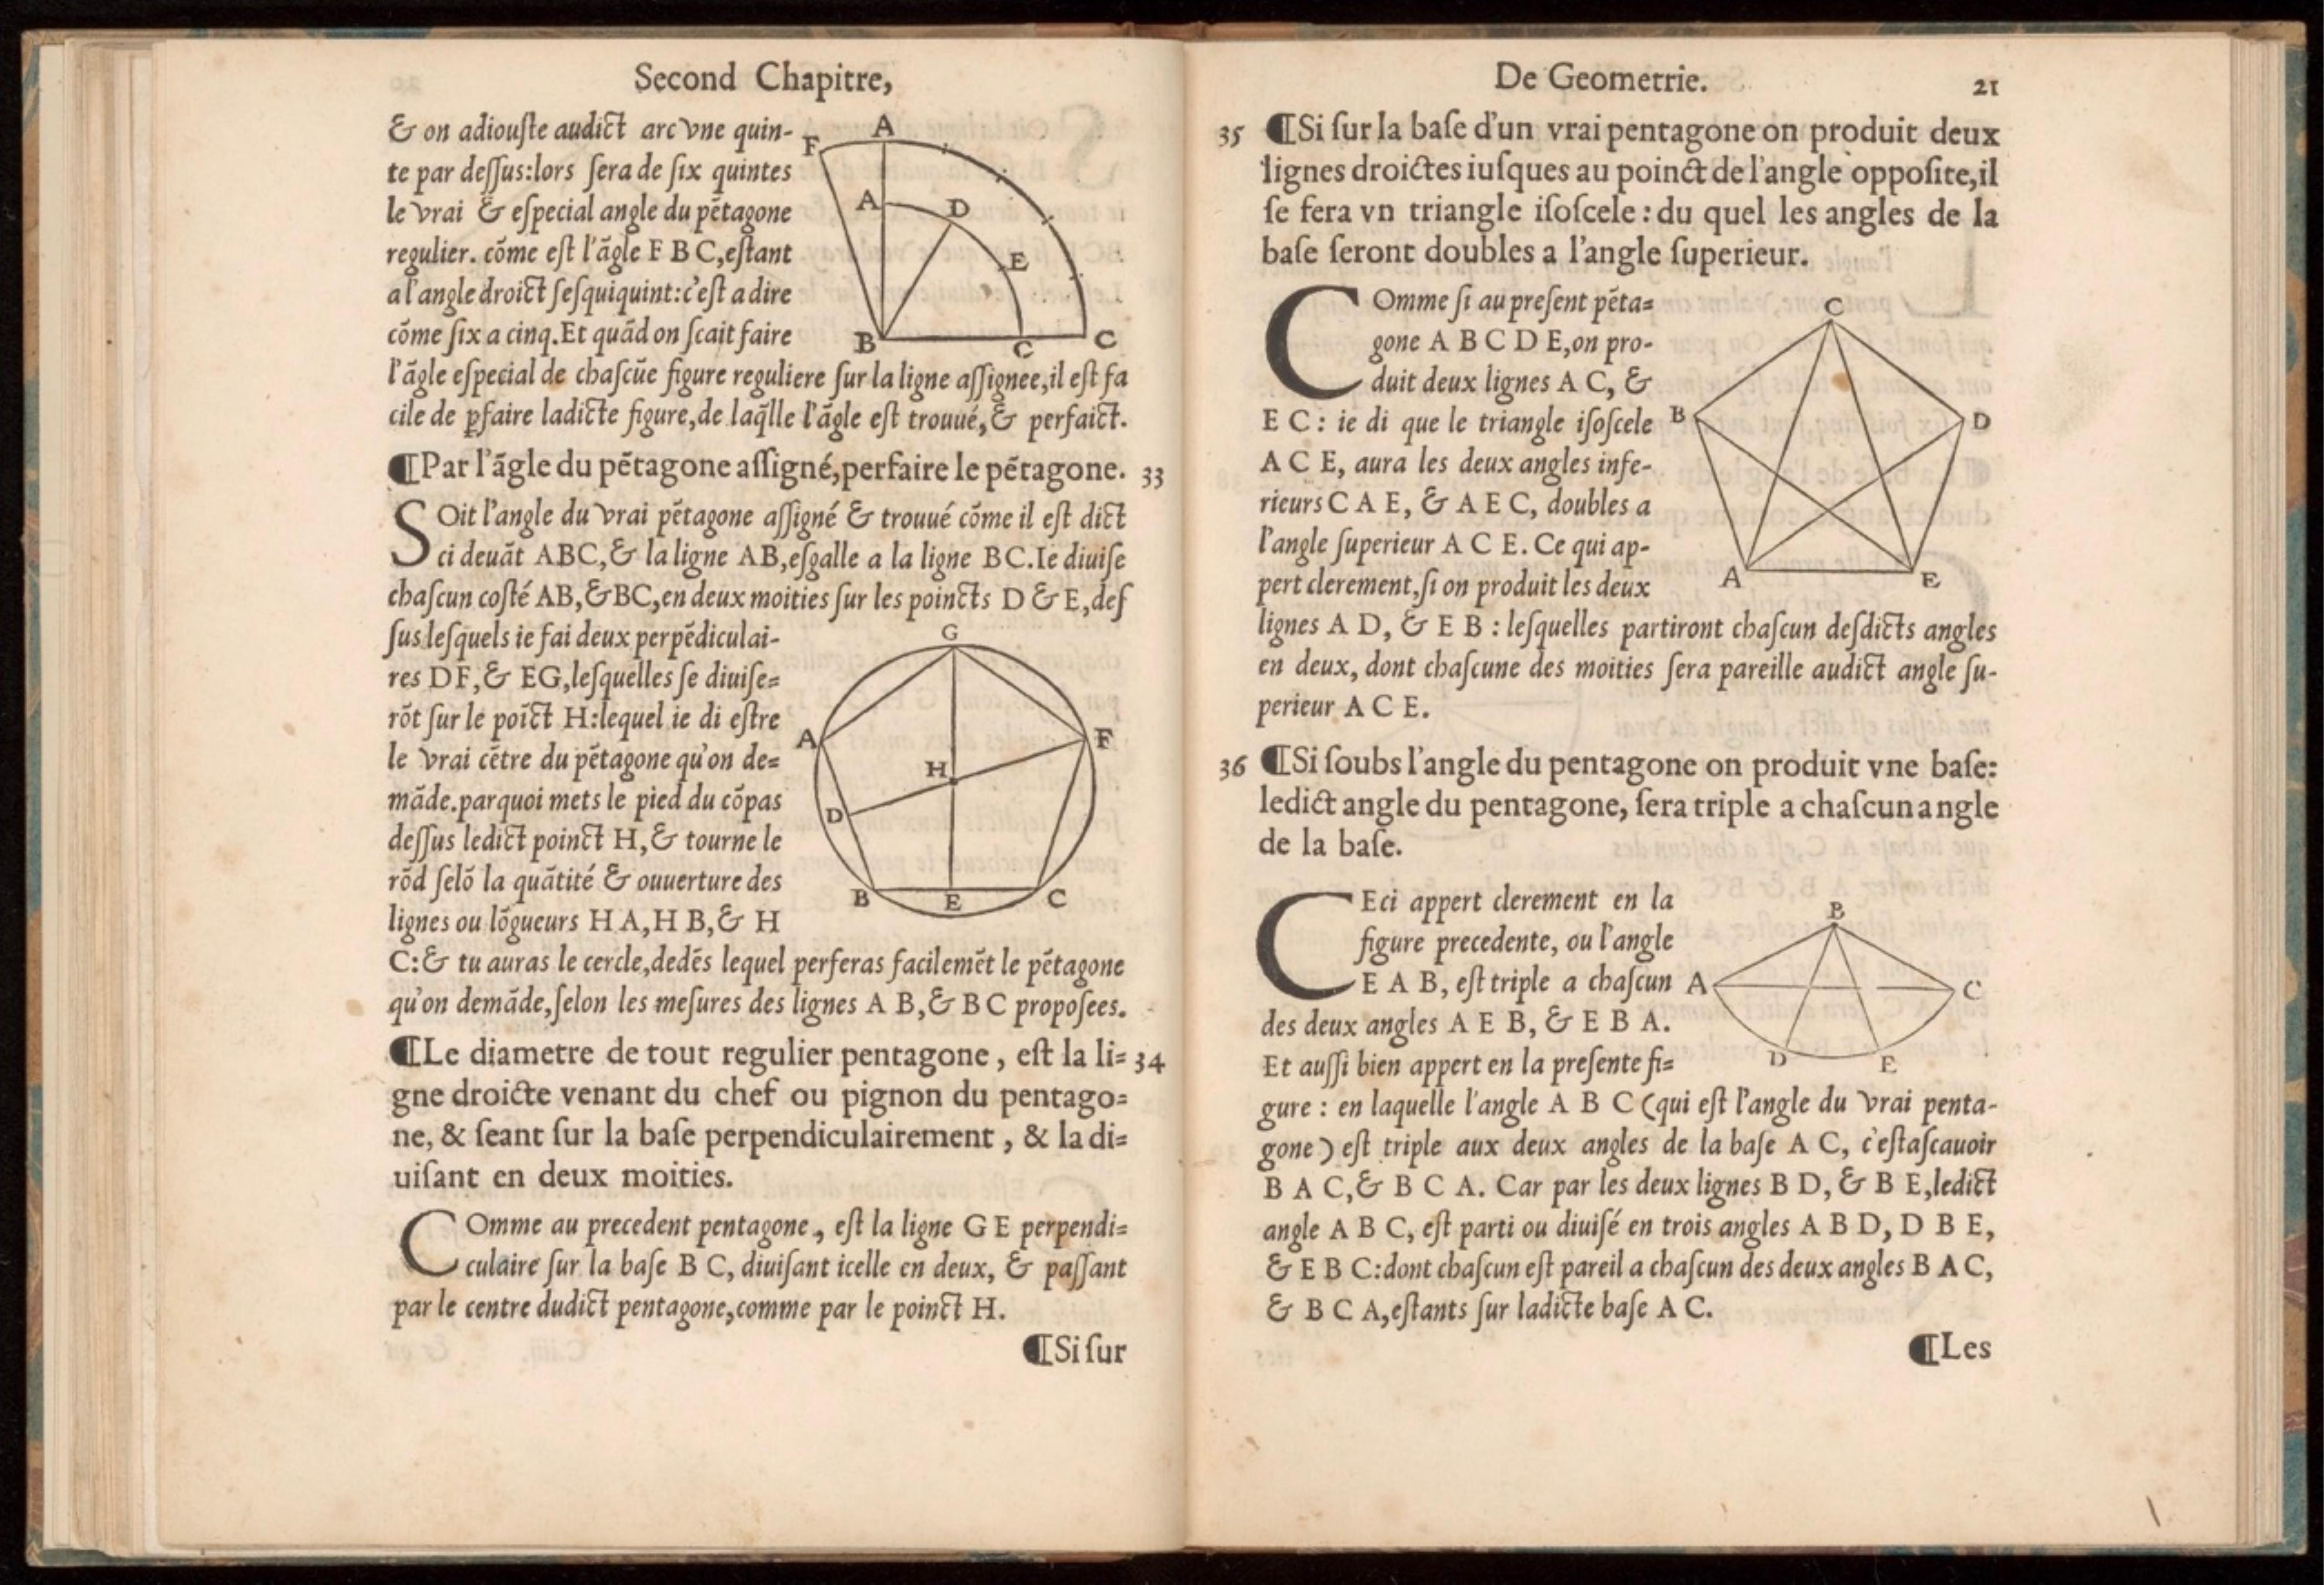 Second Chapitre,
& on adiouſte audict arc vne quin-
te par deſſus:lors ſera de ſix quintes
le vrai & eſpecial angle du pẽtagone
regulier. cõme eſt l'ãgle F B C,eſtant
a l'angle droict ſeſquiquint:c'eſt a dire
cõme ſix a cinq.Et quãd on ſcait faire
l'ãgle eſpecial de chaſcũe figure reguliere ſur la ligne aſſignee,il eſt fa
cile de ꝑfaire ladicte figure,de laq̃lle l'ãgle eſt trouué,& perfaict.
F
A
A
D
E
B
C
C
¶Par l'ãgle du pẽtagone aſſigné,perfaire le pẽtagone. 33
SOit l'angle du vrai pẽtagone aſſigné & trouué cõme il eſt dict
ci deuãt ABC,& la ligne AB,eſgalle a la ligne BC.Ie diuiſe
chaſcun coſté AB,&BC,en deux moities ſur les poincts D & E,deſ
ſus leſquels ie fai deux perpẽdiculai-
res DF,& EG,leſquelles ſe diuiſe=
rõt ſur le poĩct H:lequel ie di eſtre
le vrai cẽtre du pẽtagone qu'on de=
mãde.parquoi mets le pied du cõpas
deſſus ledict poinct H,& tourne le
rõd ſelõ la quãtité & ouuerture des
lignes ou lõgueurs H A,H B,& H
C:& tu auras le cercle,dedẽs lequel perferas facilemẽt le pẽtagone
qu'on demãde,ſelon les meſures des lignes A B,& B C propoſees.
G
A
F
H
D
B
E
C
¶Le diametre de tout regulier pentagone , eſt la li= 34
gne droicte venant du chef ou pignon du pentago=
ne, & ſeant ſur la baſe perpendiculairement , & la di=
uiſant en deux moities.
COmme au precedent pentagone , eſt la ligne G E perpendi=
culaire ſur la baſe B C, diuiſant icelle en deux, & paſſant
par le centre dudict pentagone,comme par le poinct H.
¶Si ſur
De Geometrie. 21
35 ¶Si ſur la baſe d'un vrai pentagone on produit deux
lignes droictes iuſques au poinct de l'angle oppoſite,il
ſe fera vn triangle iſoſcele : du quel les angles de la
baſe ſeront doubles a l'angle ſuperieur.
COmme ſi au preſent pẽta=
gone A B C D E,on pro-
duit deux lignes A C, &
E C : ie di que le triangle iſoſcele
A C E, aura les deux angles infe-
rieurs C A E, & A E C, doubles a
l'angle ſuperieur A C E. Ce qui ap-
pert clerement,ſi on produit les deux
lignes A D, & E B : leſquelles partiront chaſcun deſdicts angles
en deux, dont chaſcune des moities ſera pareille audict angle ſu-
perieur A C E.
C
B
D
A
E
36 ¶Si ſoubs l'angle du pentagone on produit vne baſe:
ledict angle du pentagone, ſera triple a chaſcun angle
de la baſe.
CEci appert clerement en la
figure precedente, ou l'angle
E A B, eſt triple a chaſcun
des deux angles A E B, & E B A.
Et auſſi bien appert en la preſente fi=
gure : en laquelle l'angle A B C (qui eſt l'angle du vrai penta-
gone ) eſt triple aux deux angles de la baſe A C, c'eſtaſcauoir
B A C,& B C A. Car par les deux lignes B D, & B E,ledict
angle A B C, eſt parti ou diuiſé en trois angles A B D, D B E,
& E B C:dont chaſcun eſt pareil a chaſcun des deux angles B A C,
& B C A,eſtants ſur ladicte baſe A C.
B
A
C
D
E
¶Les